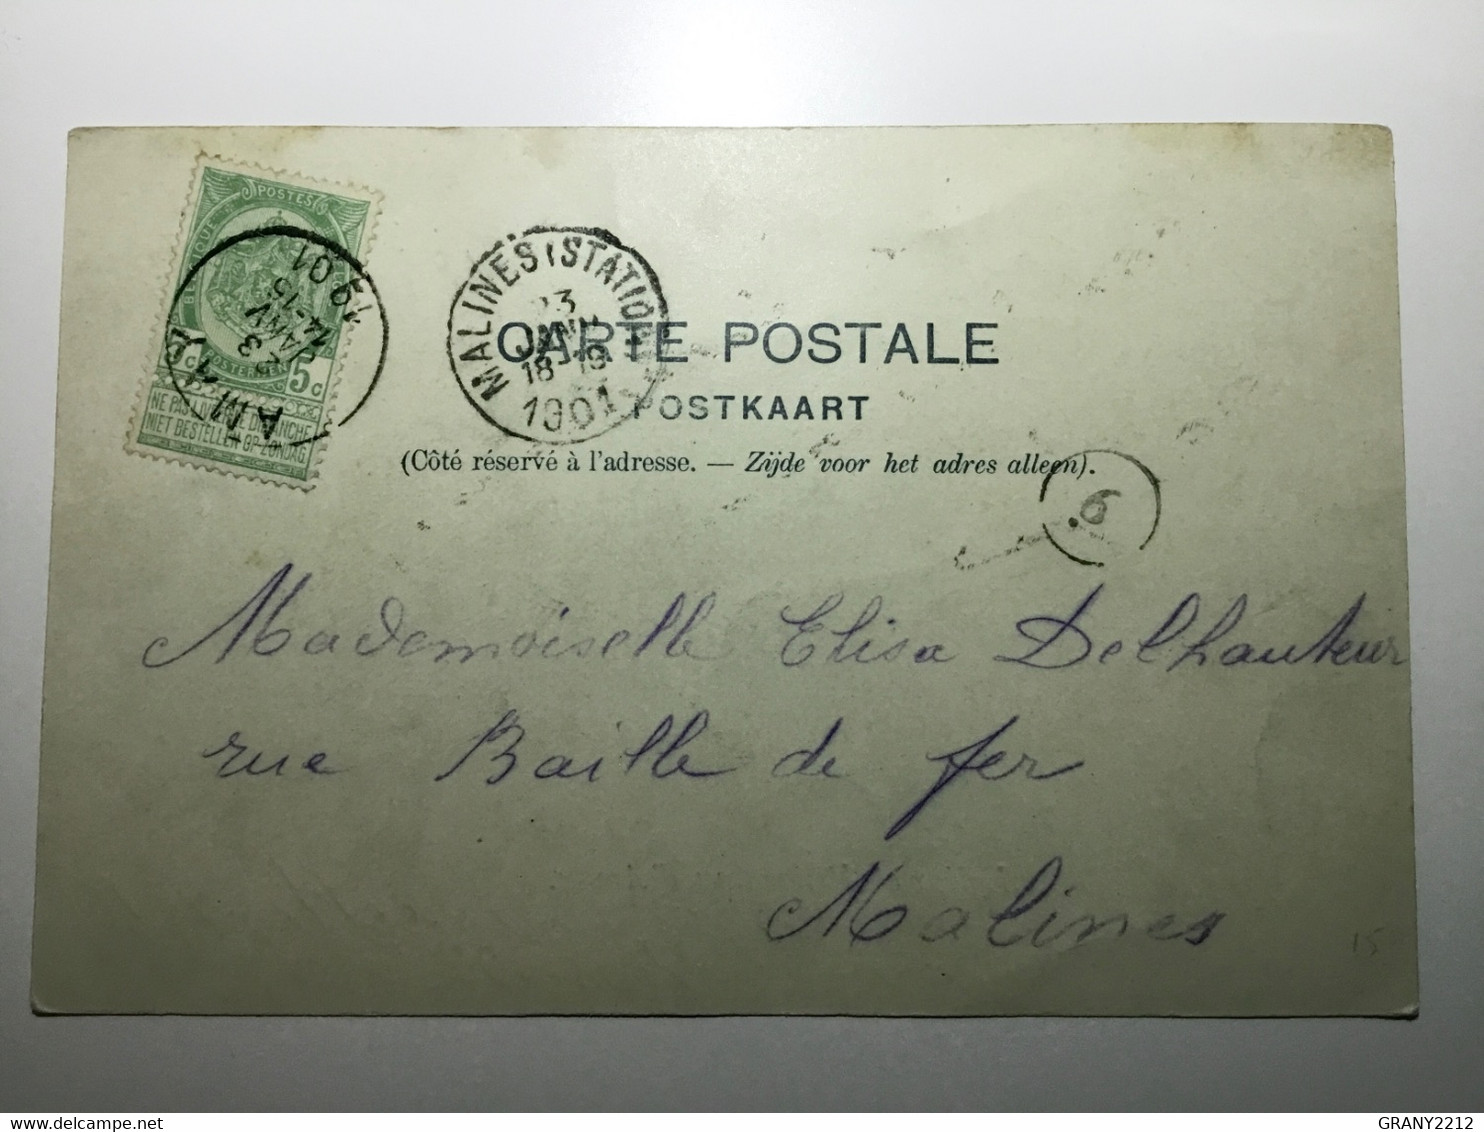 POSTES
BELGIQUE
5c
NE PAS LIVRER LE DIMANCHE
NIET BESTELLEN OP ZONDAG
14-15
JANV
1901
MALINES (STATION)
23
JANV
18-19
1901
CARTE POSTALE
POSTKAART
(Côté réservé à l'adresse. — Zijde voor het adres alleen).
6
Mademoiselle Elisa Delhauteur
rue Baille de fer
Malines
15
delcampe.net
GRANY2212